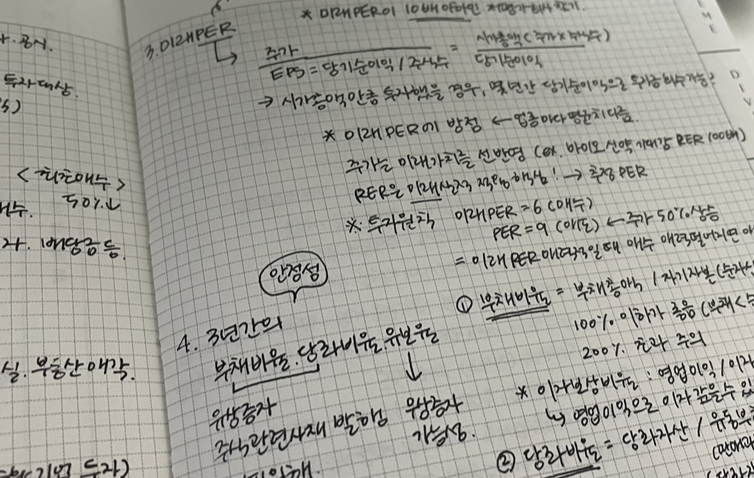 * 미래PER이 10배 이하인 저평가회사 찾기.
3. 미래PER
주가 / EPS = 당기순이익 / 주식수 = 시가총액 (주가x주식수) / 당기순이익
→ 시가총액만큼 투자했을 경우, 몇년간 당기순이익으로 투자금 회수가능?
* 미래PER에 방점 ← 업종마다 평균치 다름.
주가는 미래가치를 선반영 (ex. 바이오 신약 기대감 PER 100배)
PER은 미래실적 적용 핵심! → 추정 PER
※ 투자원칙 미래PER = 6 (매수)
PER = 9 (매도) ← 주가 50% 상승
= 미래PER 매력적일때 매수 매력떨어지면
안정성
4. 3년간의
부채비율. 당좌비율. 유보율
유상증자
주식관련사채 발행
무상증자
가능성.
① 부채비율 = 부채총액 / 자기자본
100% 이하가 좋음 (부채<
200% 초과 주의
* 이자보상비율 : 영업이익 / 이자
↳ 영업이익으로 이자 갚을수
② 당좌비율 = 당좌자산 /
투자대상.
<최초매수>
50%↓
배당금 등.
부동산 매각.
기업 투자)